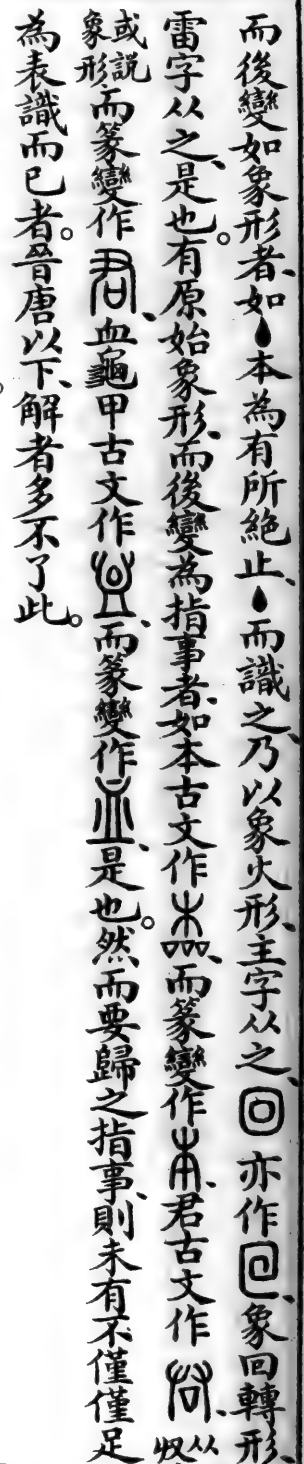 而後變如象形者、如丶本為有所絶止、丶而識之、乃以象火形、主字从之、囘亦作囘、象回轉形、
雷字从之、是也。有原始象形、而後變為指事者、如本古文作𣎵、而篆變作本、君古文作𠱩、从𠬞
或説象形而篆變作君、血龜甲古文作、而篆變作、是也。然而要歸之指事、則未有不僅僅足
為表識而已者。晉唐以下、解者多不了此。